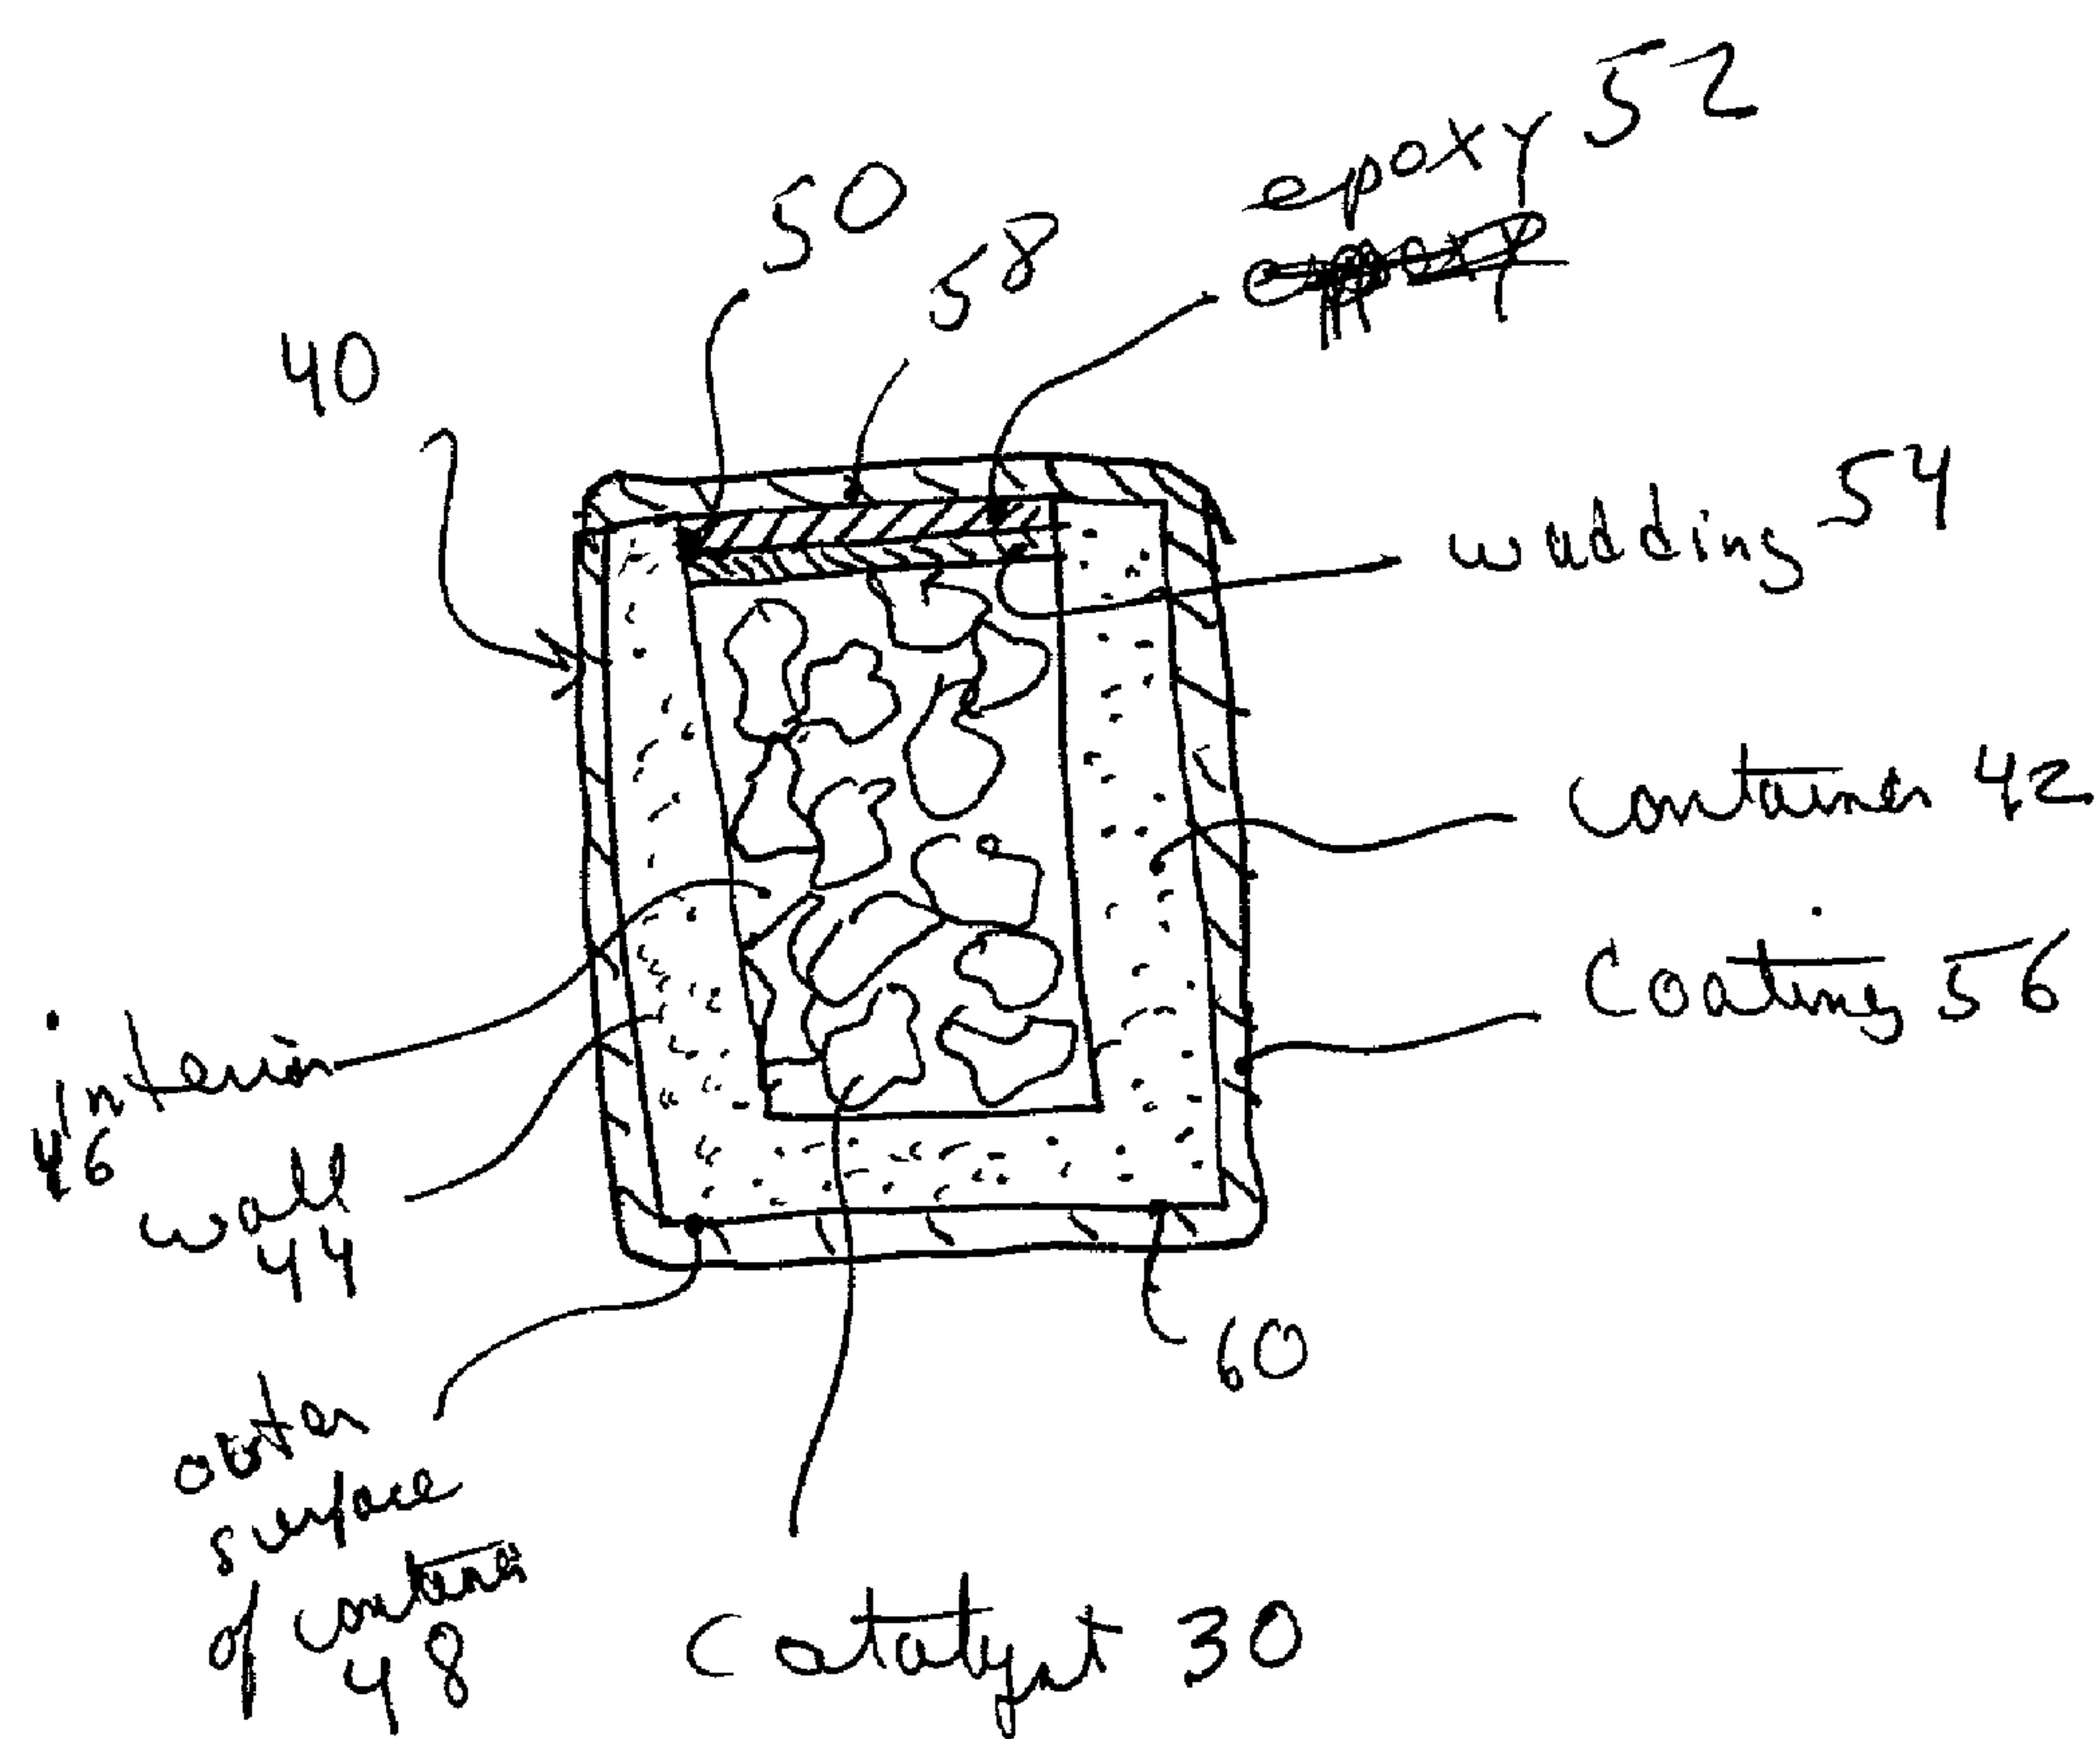 epoxy 52
50
58
40
wadding 54
container 42
Coating 56
interior
46
wall
44
60
outer
surface
of container
48
Catalyst 30